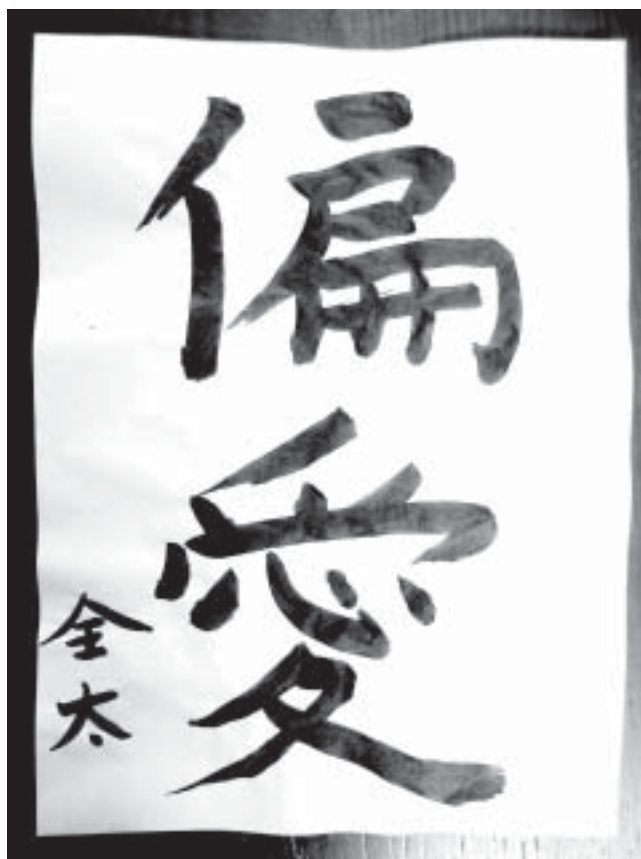 偏愛
全太